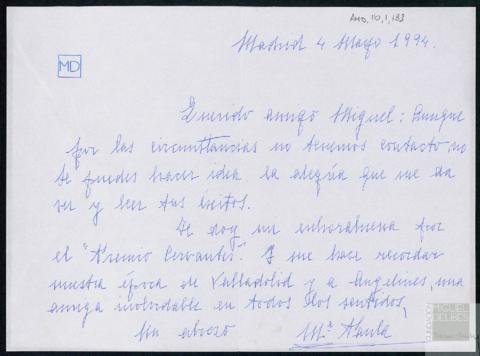 AMD, 110, 1, 183
Madrid 4 Mayo 1994.
MD
Querido amigo Miguel: Aunque
por las circunstancias no tenemos contacto, no
te puedes hacer idea la alegría que me da
ver y leer tus éxitos.
Te doy mi enhorabuena por
el "Premio Cervantes". Y me hace recordar
nuestra época de Valladolid y a Angelines, una
amiga inolvidable en todos los sentidos,
Un abrazo Mª Paula
FUNDACIÓN
MIGUEL
DELIBES